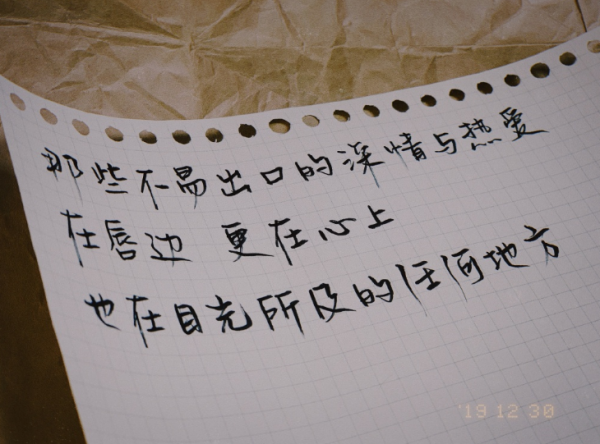 那些不易出口的深情与热爱
在唇边 更在心上
也在目光所及的任何地方
'13 12 30